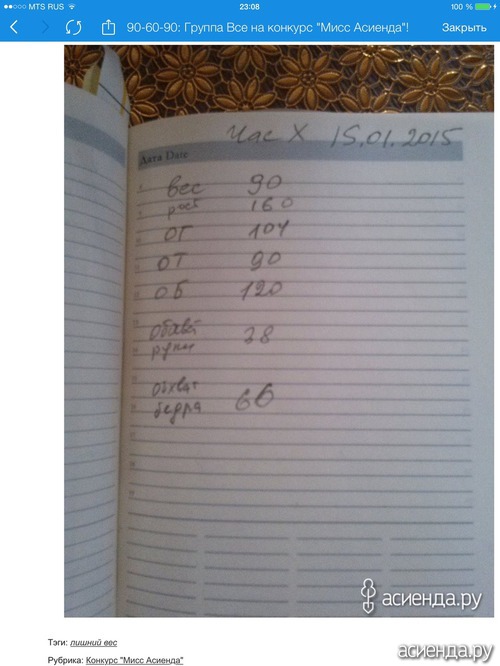 MTS RUS
23:08
100 %
90-60-90: Группа Все на конкурс "Мисс Асиенда"!
Закрыть
Час X 15.01.2015
Дата Date
вес 90
рост 160
ОГ 104
ОТ 90
ОБ 120
обхват
руки 38
обхват
бедра 66
асиенда.ру
Тэги: лишний вес
Рубрика: Конкурс "Мисс Асиенда"
асиенда.ру